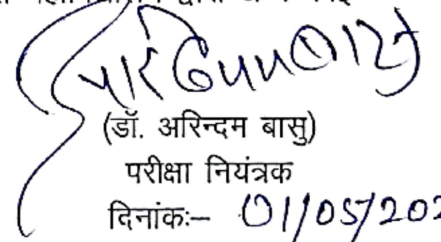 (डॉ. अरिन्दम बासु)
परीक्षा नियंत्रक
दिनांकः– 01/05/202